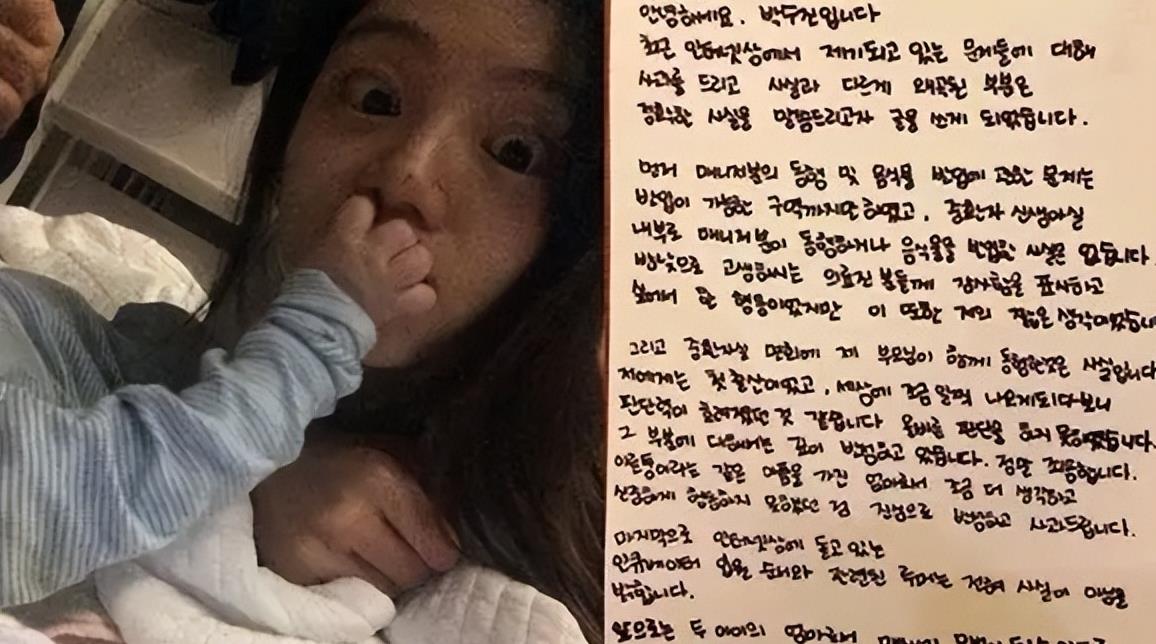 안녕하세요. 박수진입니다
최근 인터넷상에서 제기되고 있는 문제들에 대해
사과를 드리고 사실과 다르게 왜곡된 부분은
정확한 사실을 말씀드리고자 글을 쓰게 되었습니다.
먼저 매니저분의 동행 및 음식물 반입에 관한 문제는
반입이 가능한 구역까지만 하였고, 중환자 신생아실
내부로 매니저분이 동행하거나 음식물을 반입한 사실은 없습니다.
밤낮으로 고생하시는 의료진 분들께 감사함을 표시하고
싶어서 한 행동이었지만 이 또한 저의 짧은 생각이었습니
그리고 중환자실 면회에 제 부모님이 함께 동행한것은 사실입니다
저에게는 첫 출산이었고, 세상에 조금 일찍 나오게되다보니
판단력이 흐려졌던 것 같습니다 올바른 판단을 하지 못하였습니다.
그 부분에 대해서는 깊이 반성하고 있습니다. 정말 죄송합니다.
이른둥이라는 같은 아픔을 가진 엄마로서 조금 더 생각하고
신중하게 행동하지 못했던 점 진심으로 반성하고 사과드립니다.
마지막으로 인터넷상에 돌고 있는
인큐베이터 입원 순서와 관련된 루머는 전혀 사실이 아님을
밝힙니다.
앞으로는 두 아이의 엄마로서